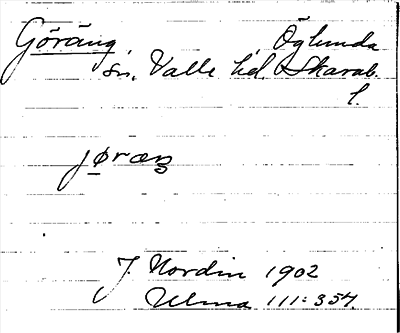 Göräng, Öglunda
sn, Valle hd. Skarab.
l.
J. Nordin 1902
Ulma 111:354.